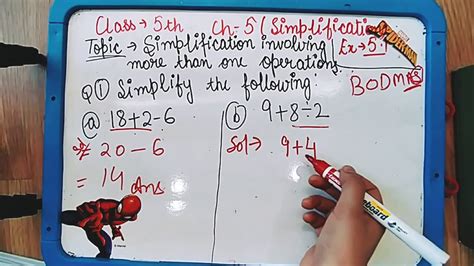 Class → 5th Ch-5 (Simplification)
Topic → Simplification involving Ex → 5.1
more than one operations
Q① Simplify the following BODMAS
ⓐ 18+2-6 ⓑ 9+8÷2
20-6 Sol→ 9+4
= 14 Ans